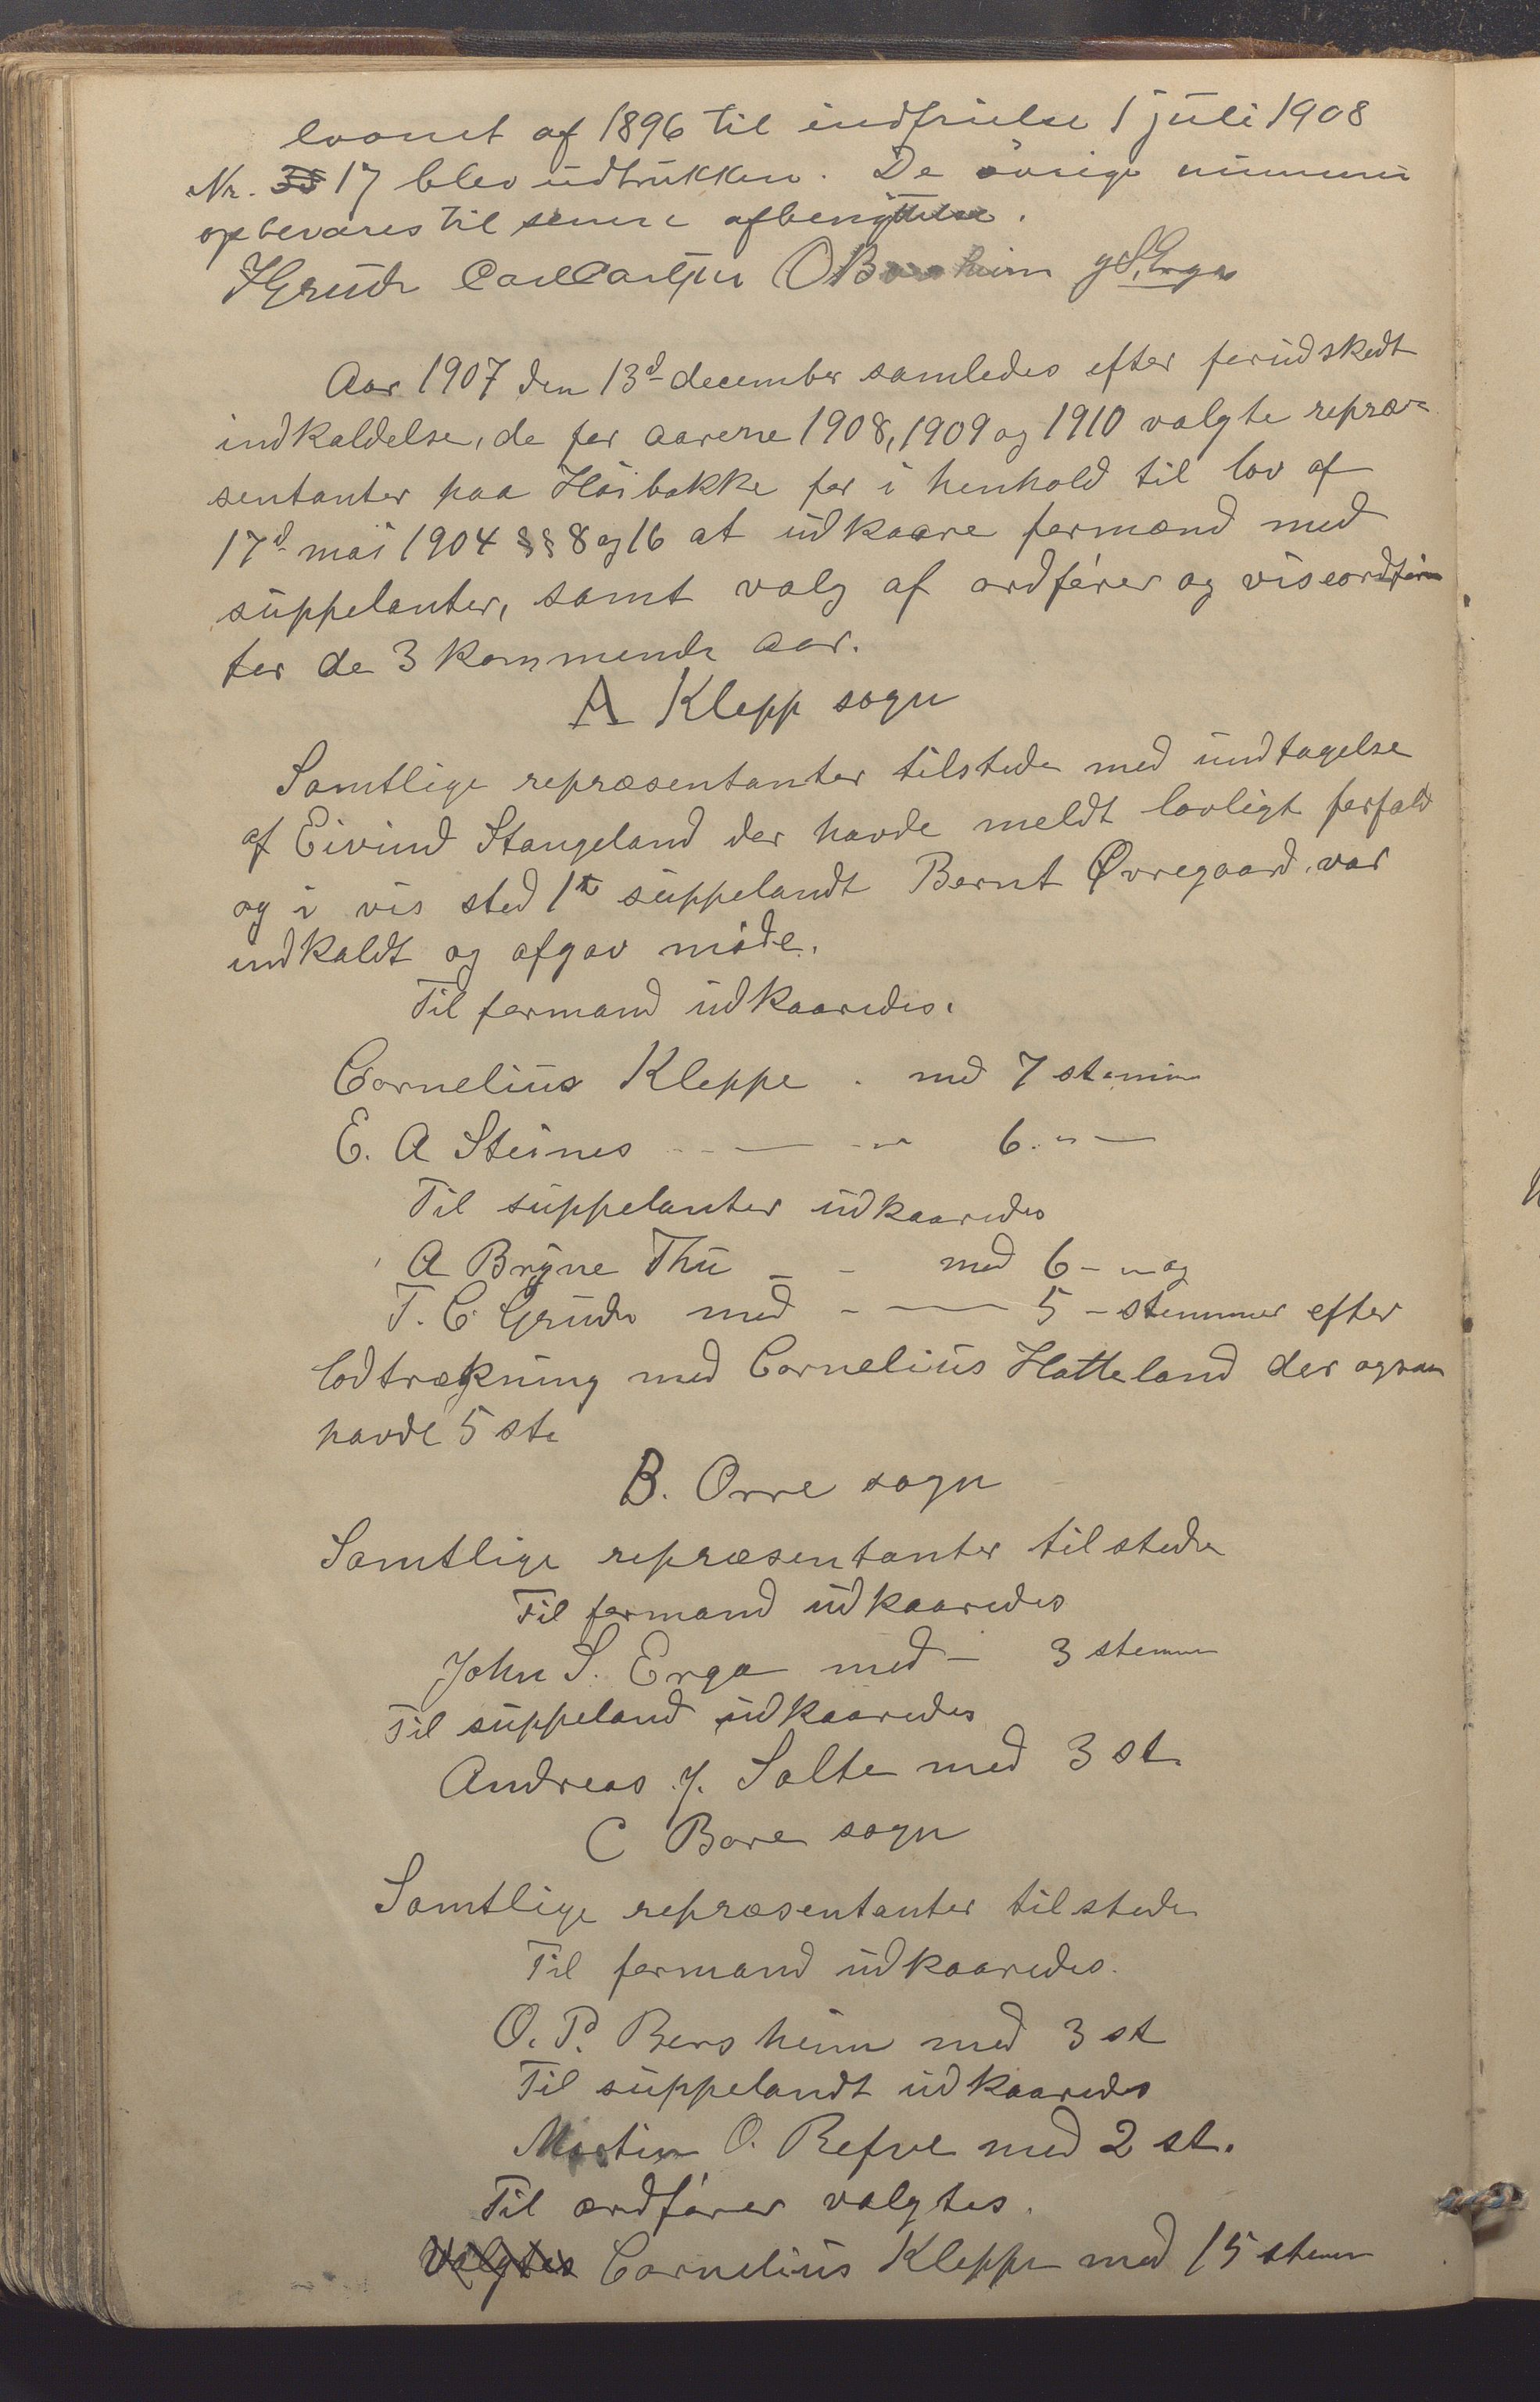 laanet af 1896 til indfrielse 1 juli 1908
Nr. 17 blev udtrukken. De övrige nummere
opbevares til senere afbenyttelse.
T Grude O Bersheim J S. Erga
Aar 1907 den 13d december samledes efter forudskedt
indkaldelse, de for aarene 1908, 1909 og 1910 valgte repræ-
sentanter paa Höibakke for i henhold til lov af
17d mai 1904 §§ 8 og 16 at udkaare formænd med
suppelanter, samt valg af ordfører og viseordfører
for de 3 kommende aar.
A Klepp sogn
Samtlige repræsentanter tilstede med undtagelse
af Eivind Stangeland der havde meldt lovligt forfald
og i vis sted 1te suppelandt Bernt Øvregaard var
indkaldt og afgav möde.
Til formand udkaaredes.
Cornelius Kleppe. med 7 stemmer
E. A Steines - — - " 6. " —
Til suppelanter udkaaredes
A Bryne Thu - - med 6 - " og
T. C. Grude med - — 5 - stemmer efter
lodtrækning med Cornelius Hatteland der ogsaa
havde 5 st.
B. Orre sogn
Samtlige repræsentanter tilstede
Til formand udkaaredes
John S. Erga med - 3 stemmer
Til suppeland udkaaredes
Andreas J. Salte med 3 st.
C Bore sogn
Samtlige repræsentanter tilstede
Til formand udkaaredes.
O. P. Bersheim med 3 st
Til suppelandt udkaaredes
Martin O. Refve med 2 st.
Til ordfører valgtes.
Valgtes Cornelius Kleppe med 15 stemmer